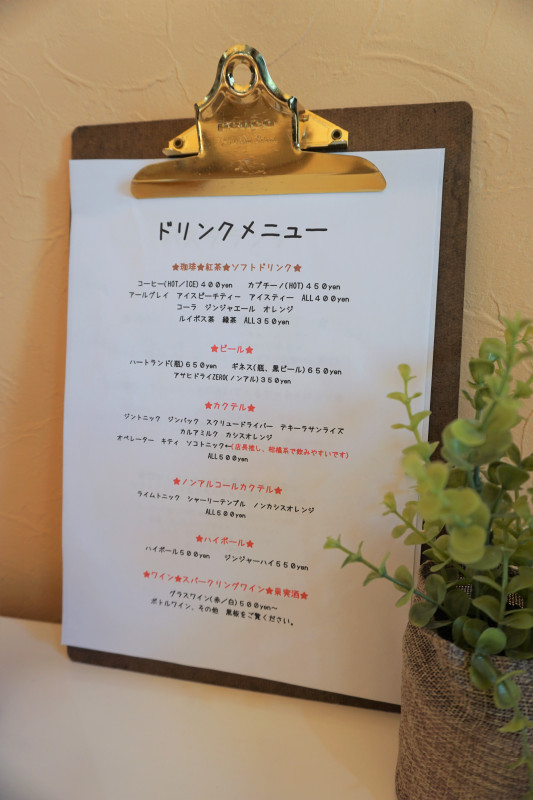 ドリンクメニュー
★珈琲★紅茶★ソフトドリンク★
コーヒー(HOT/ICE)400yen カプチーノ(HOT)450yen
アールグレイ アイスピーチティー アイスティー ALL400yen
コーラ ジンジャエール オレンジ
ルイボス茶 緑茶 ALL350yen
★ビール★
ハートランド(瓶)650yen ギネス(瓶、黒ビール)650yen
アサヒドライZERO(ノンアル)350yen
★カクテル★
ジントニック ジンバック スクリュードライバー テキーラサンライズ
カルアミルク カシスオレンジ
オペレーター キティ ソコトニック←(店長推し、柑橘系で飲みやすいです)
ALL500yen
★ノンアルコールカクテル★
ライムトニック シャーリーテンプル ノンカシスオレンジ
ALL500yen
★ハイボール★
ハイボール500yen ジンジャーハイ550yen
★ワイン★スパークリングワイン★果実酒★
グラスワイン(赤/白)500yen~
ボトルワイン、その他 黒板をご覧ください。